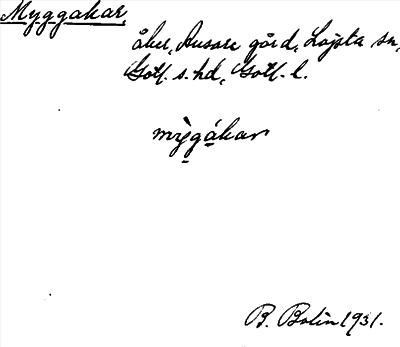 Myggakar
åker, Ausare gård, Lojsta sn,
Gotl. s. hd, Gotl. l.
mỳgákar
B. Bolin 1931.